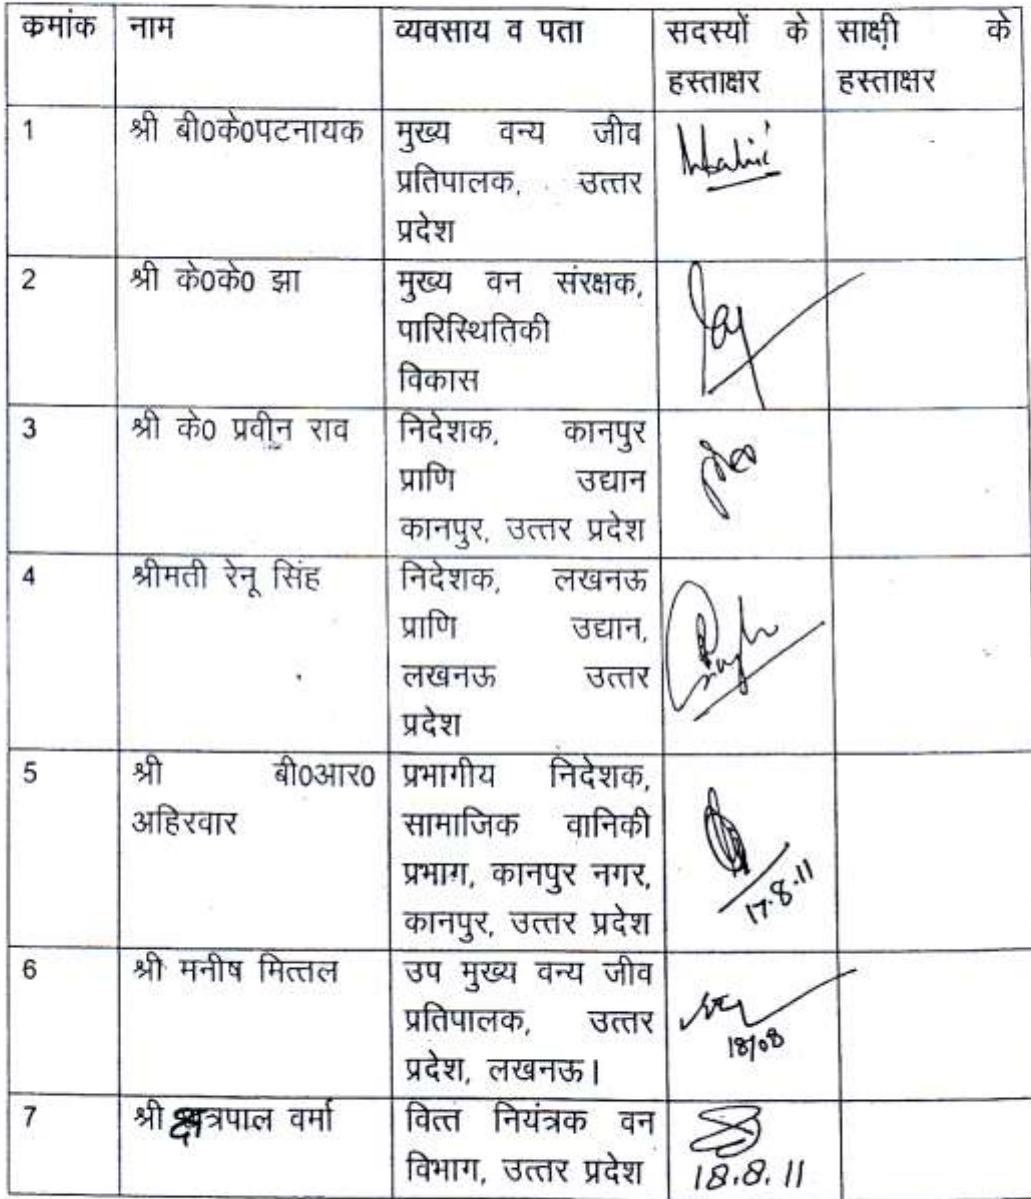 कमांक नाम व्यवसाय व पता सदस्यों के साक्षी के
हस्ताक्षर हस्ताक्षर
1 श्री बी0के0पटनायक मुख्य वन्य जीव
प्रतिपालक, उत्तर
प्रदेश
2 श्री के0के0 झा मुख्य वन संरक्षक,
पारिस्थितिकी
विकास
3 श्री के0 प्रवीन राव निदेशक, कानपुर
प्राणि उद्यान
कानपुर, उत्तर प्रदेश
4 श्रीमती रेनू सिंह निदेशक, लखनऊ
प्राणि उद्यान,
लखनऊ उत्तर
प्रदेश
5 श्री बी0आर0 प्रभागीय निदेशक,
अहिरवार सामाजिक वानिकी
प्रभाग, कानपुर नगर, 17.8.11
कानपुर, उत्तर प्रदेश
6 श्री मनीष मित्तल उप मुख्य वन्य जीव
प्रतिपालक, उत्तर 18/08
प्रदेश, लखनऊ।
7 श्री वर्मा वित्त नियंत्रक वन
विभाग, उत्तर प्रदेश 18.8.11